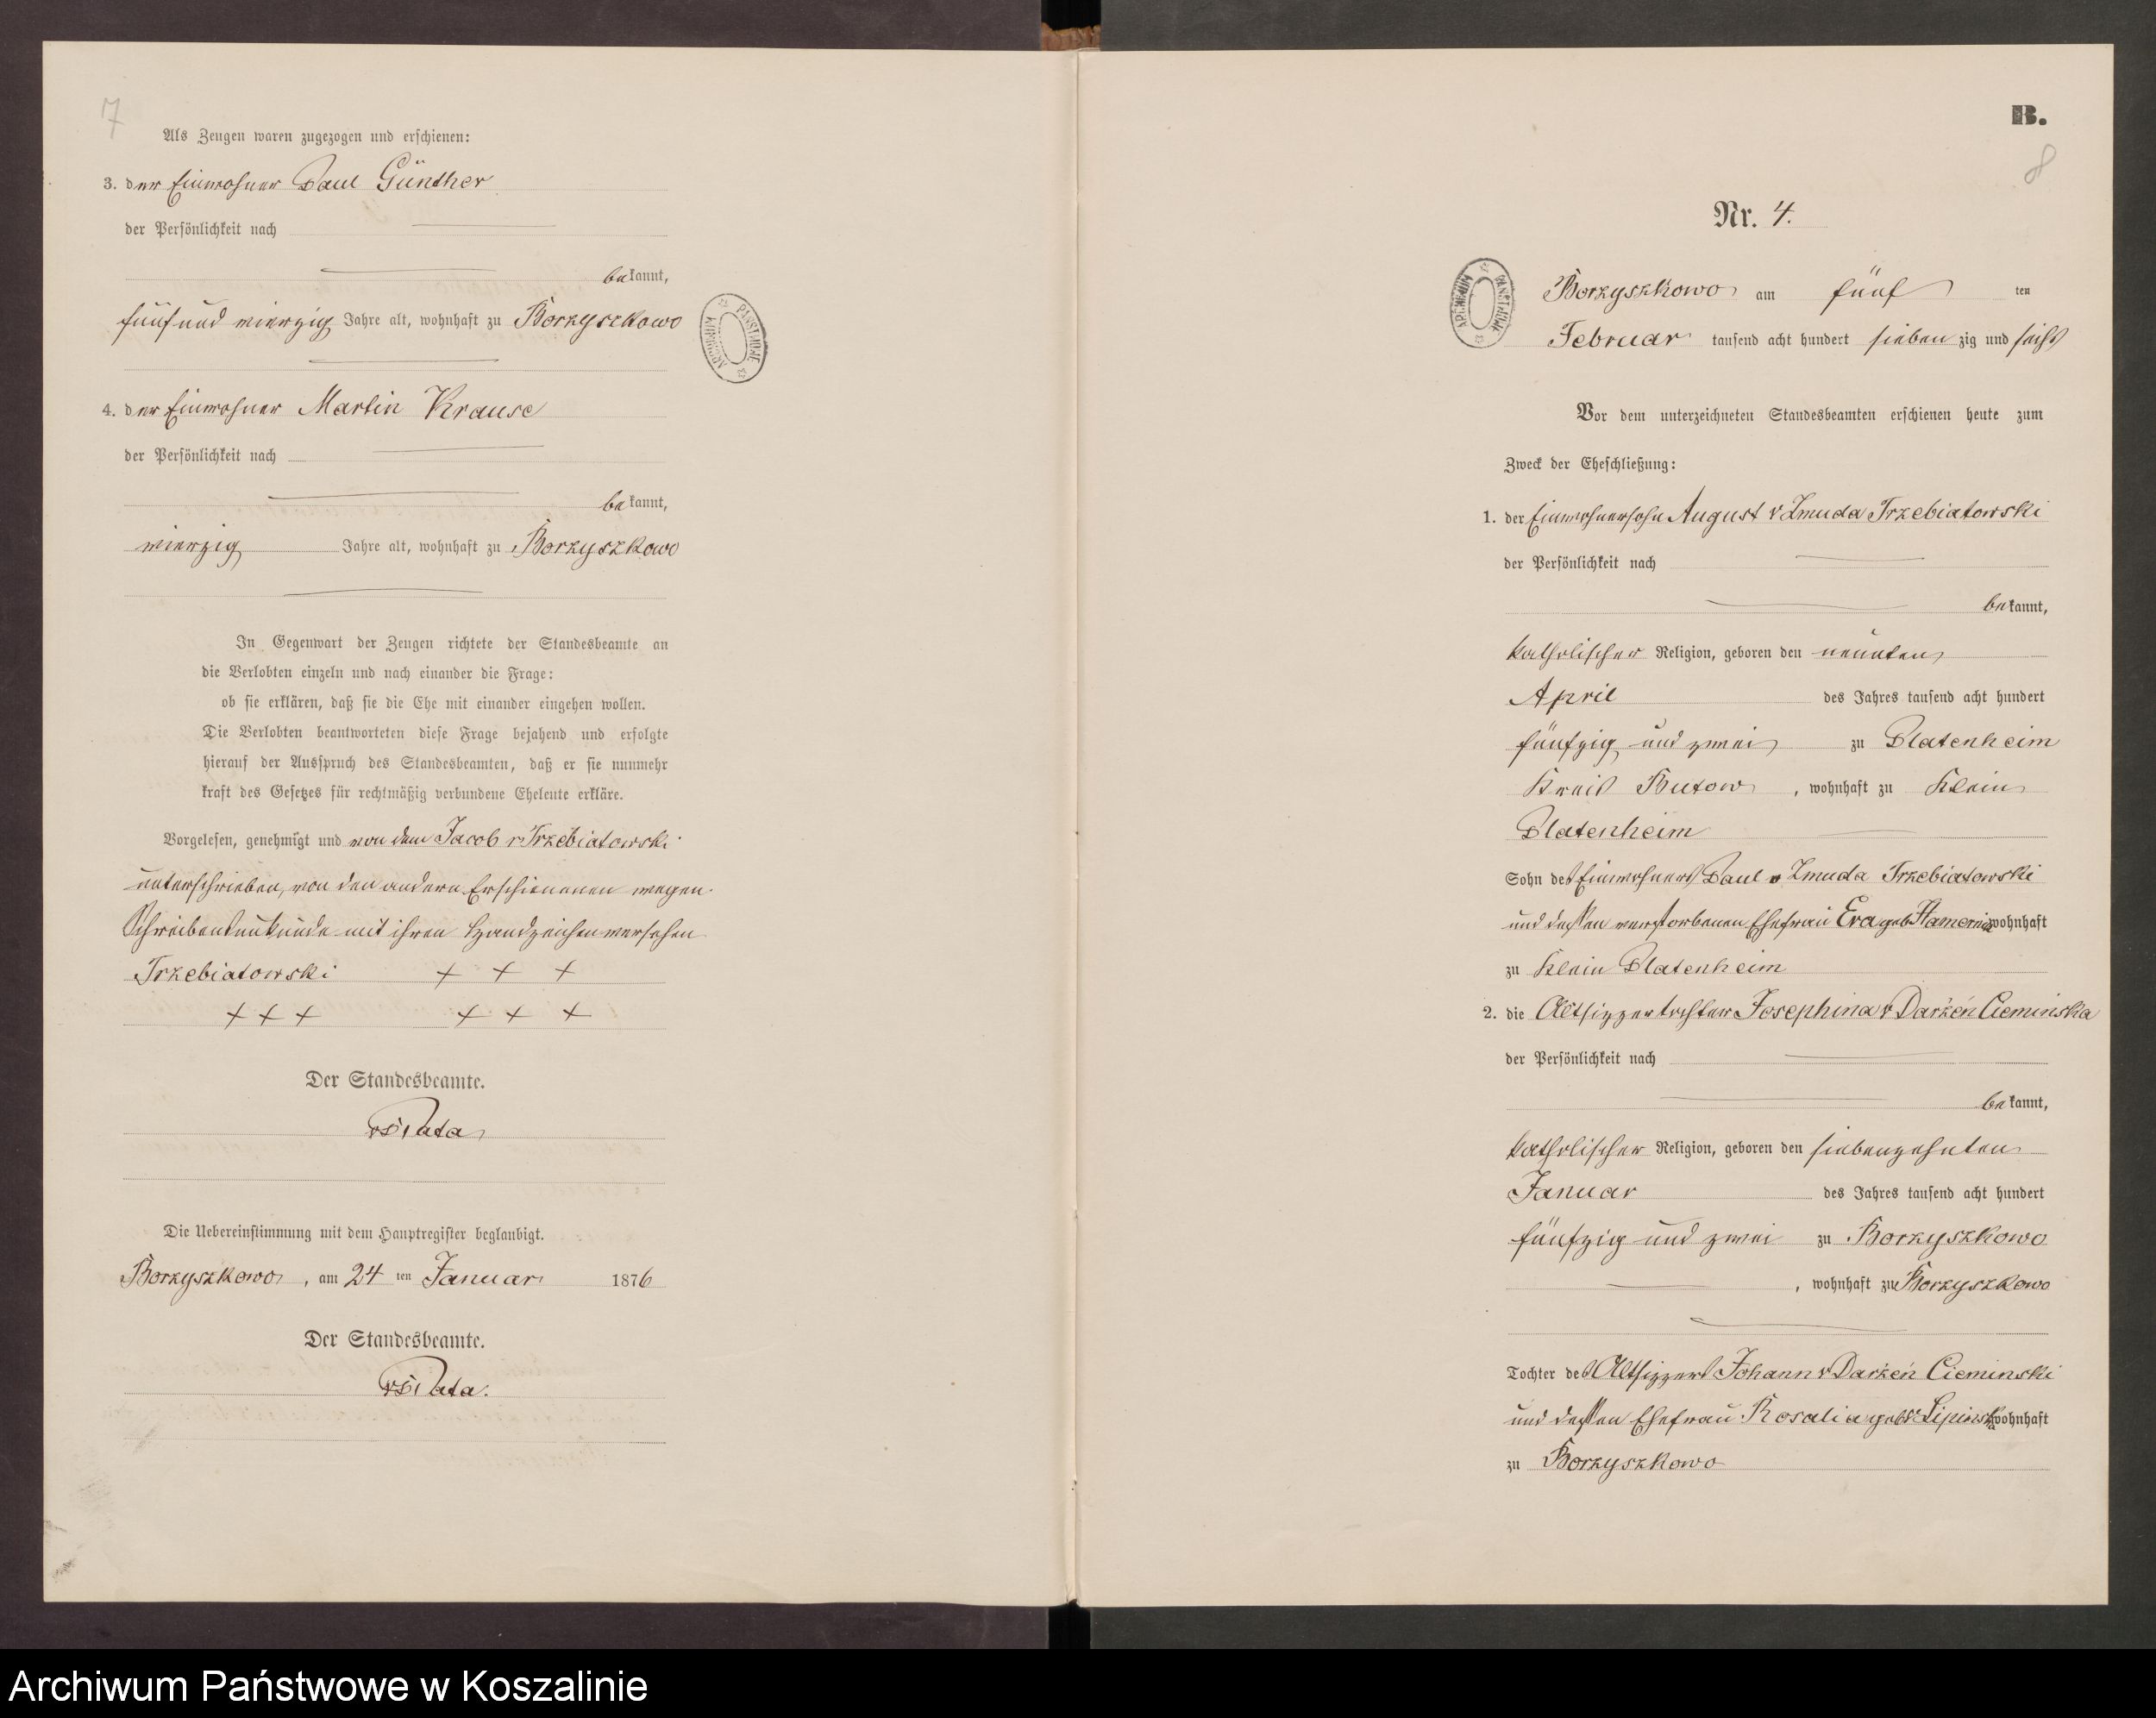 7
Als Zeugen waren zugezogen und erschienen:
3. der Einwohner Paul Günther
der Persönlichkeit nach
bekannt,
fünf und vierzig Jahre alt, wohnhaft zu Borzyszkowo
4. der Einwohner Martin Krause
der Persönlichkeit nach
bekannt,
vierzig Jahre alt, wohnhaft zu Borzyszkowo
In Gegenwart der Zeugen richtete der Standesbeamte an
die Verlobten einzeln und nach einander die Frage:
ob sie erklären, daß sie die Ehe mit einander eingehen wollen.
Die Verlobten beantworteten diese Frage bejahend und erfolgte
hierauf der Ausspruch des Standesbeamten, daß er sie nunmehr
kraft des Gesetzes für rechtmäßig verbundene Eheleute erkläre.
Vorgelesen, genehmigt und von dem Jacob v Trzebiatowski
unterschrieben, von den andern Erschienenen wegen
Schreibensunkunde mit ihren Handzeichen versehen
Trzebiatowski + + +
+ + + + + +
Der Standesbeamte.
Die Uebereinstimmung mit dem Hauptregister beglaubigt.
Borzyszkowo, am 24 ten Januar 1876
Der Standesbeamte.
ARCHIWUM PAŃSTWOWE
B.
8
Nr. 4.
ARCHIWUM PAŃSTWOWE
Borzyszkowo am fünf ten
Februar tausend acht hundert siebenzig und sechs
Vor dem unterzeichneten Standesbeamten erschienen heute zum
Zweck der Eheschließung:
1. der Einwohnersohn August v Zmuda Trzebiatowski
der Persönlichkeit nach
bekannt,
katholischer Religion, geboren den neunten
April des Jahres tausend acht hundert
fünfzig und zwei zu Platenheim
Kreis Butow, wohnhaft zu Klein
Platenheim
Sohn des Einwohners Paul v Zmuda Trzebiatowski
und dessen verstorbenen Ehefrau Eva geb wohnhaft
zu Klein Platenheim
2. die Altsitzertochter Josephina v Darżén Cieminska
der Persönlichkeit nach
bekannt,
katholischer Religion, geboren den siebenzehnten
Januar des Jahres tausend acht hundert
fünfzig und zwei zu Borzyszkowo
, wohnhaft zu Borzyszkowo
Tochter des Altsitzers Johann v Darżeń Cieminski
und dessen Ehefrau Rosalia geb v Lipinska wohnhaft
zu Borzyszkowo
Archiwum Państwowe w Koszalinie